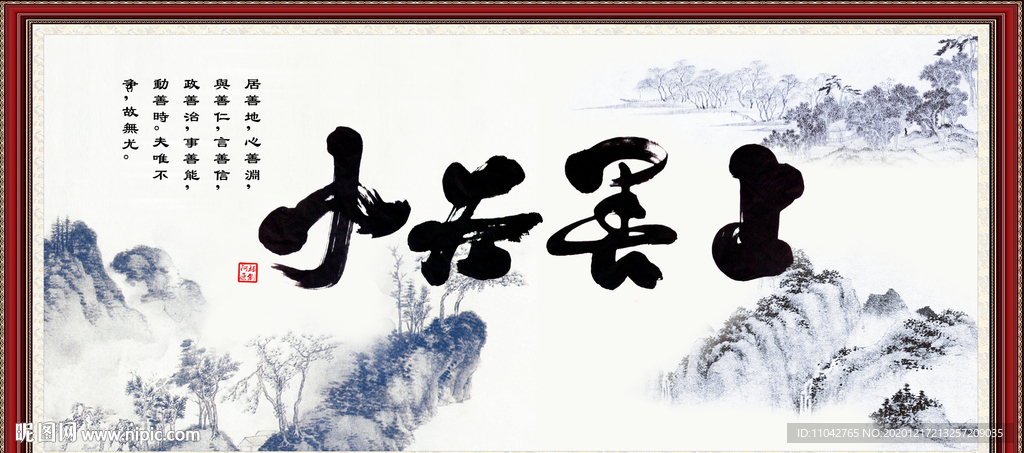 上善若水
居善地，心善淵，
與善仁，言善信，
政善治，事善能，
動善時。夫唯不
爭，故無尤。
昵图网 www.nipic.com
ID:11042765 NO:20201217213257209035